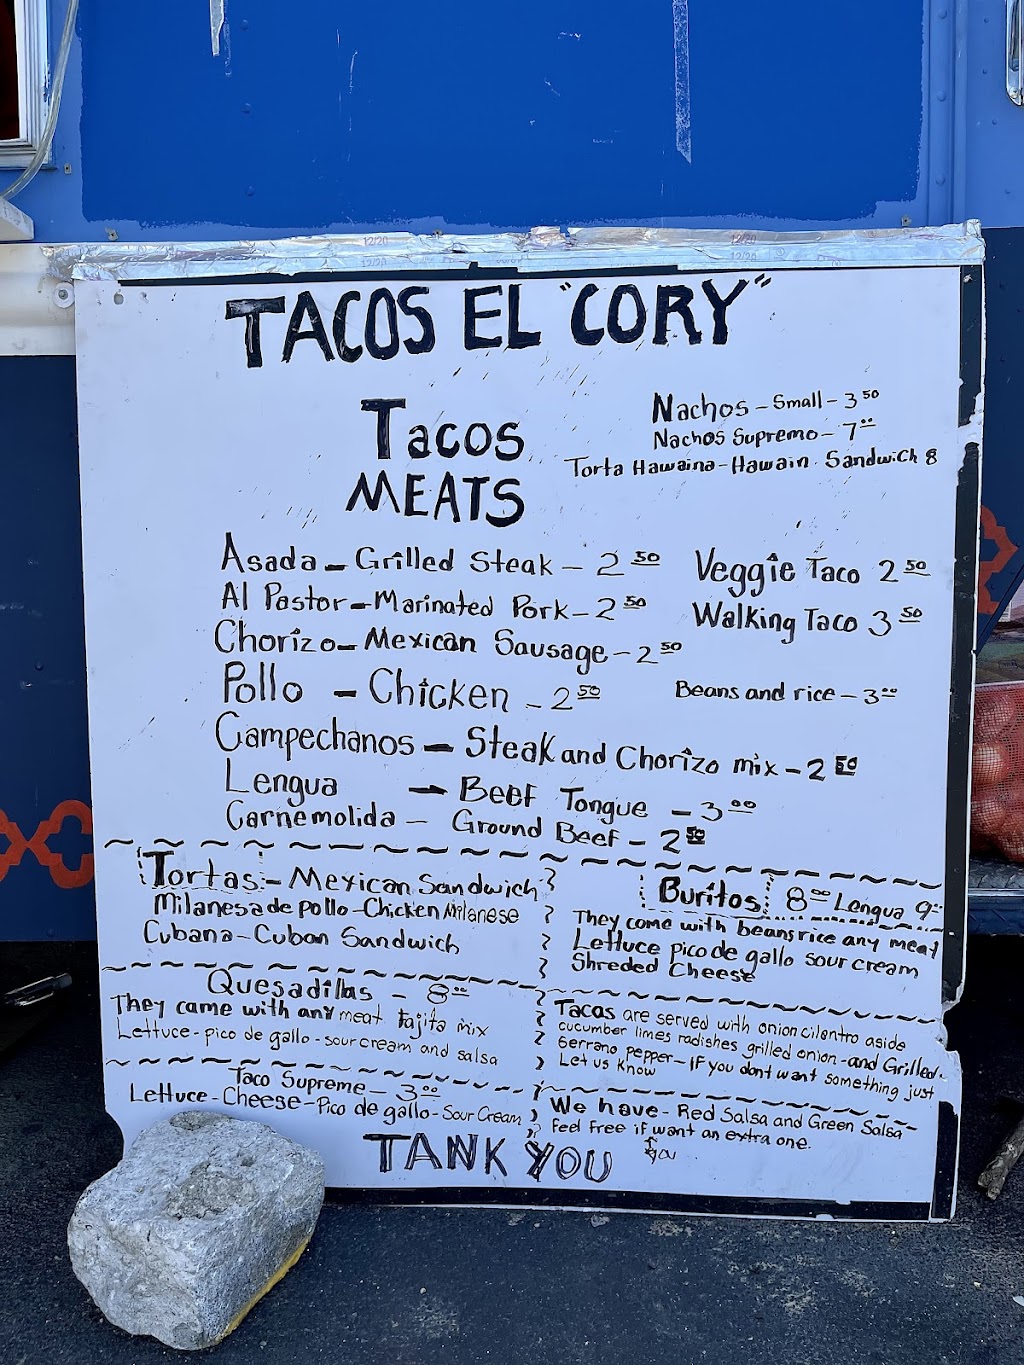 12/20
12/20
12/20
12/20
TACOS EL "CORY"
Tacos
MEATS
Nachos - Small - 3 50
Nachos Supremo - 7 00
Torta Hawaina - Hawain Sandwich 8
Asada - Grilled Steak - 2 50
Al Pastor - Marinated Pork - 2 50
Chorizo - Mexican Sausage - 2 50
Pollo - Chicken - 2 50
Campechanos - Steak and Chorizo mix - 2 50
Lengua - Beef Tongue - 3 00
Carnemolida - Ground Beef - 2 50
Veggie Taco 2 50
Walking Taco 3 50
Beans and rice - 3 00
Tortas - Mexican Sandwich
Milanesa de pollo - Chicken Milanese
Cubana - Cuban Sandwich
Buritos 8 00 Lengua 9 00
They come with beans rice any meat
Lettuce pico de gallo sour cream
Shreded Cheese
Quesadillas - 8 00
They came with any meat Fajita mix
Lettuce - pico de gallo - sour cream and salsa
Tacos are served with onion cilantro aside
cucumber limes radishes grilled onion - and Grilled.
Serrano pepper - if you dont want something just
Let us know
Taco Supreme - 3 00
Lettuce - Cheese - Pico de gallo - Sour Cream
We have - Red Salsa and Green Salsa
feel free if want an extra one.
you
TANK YOU